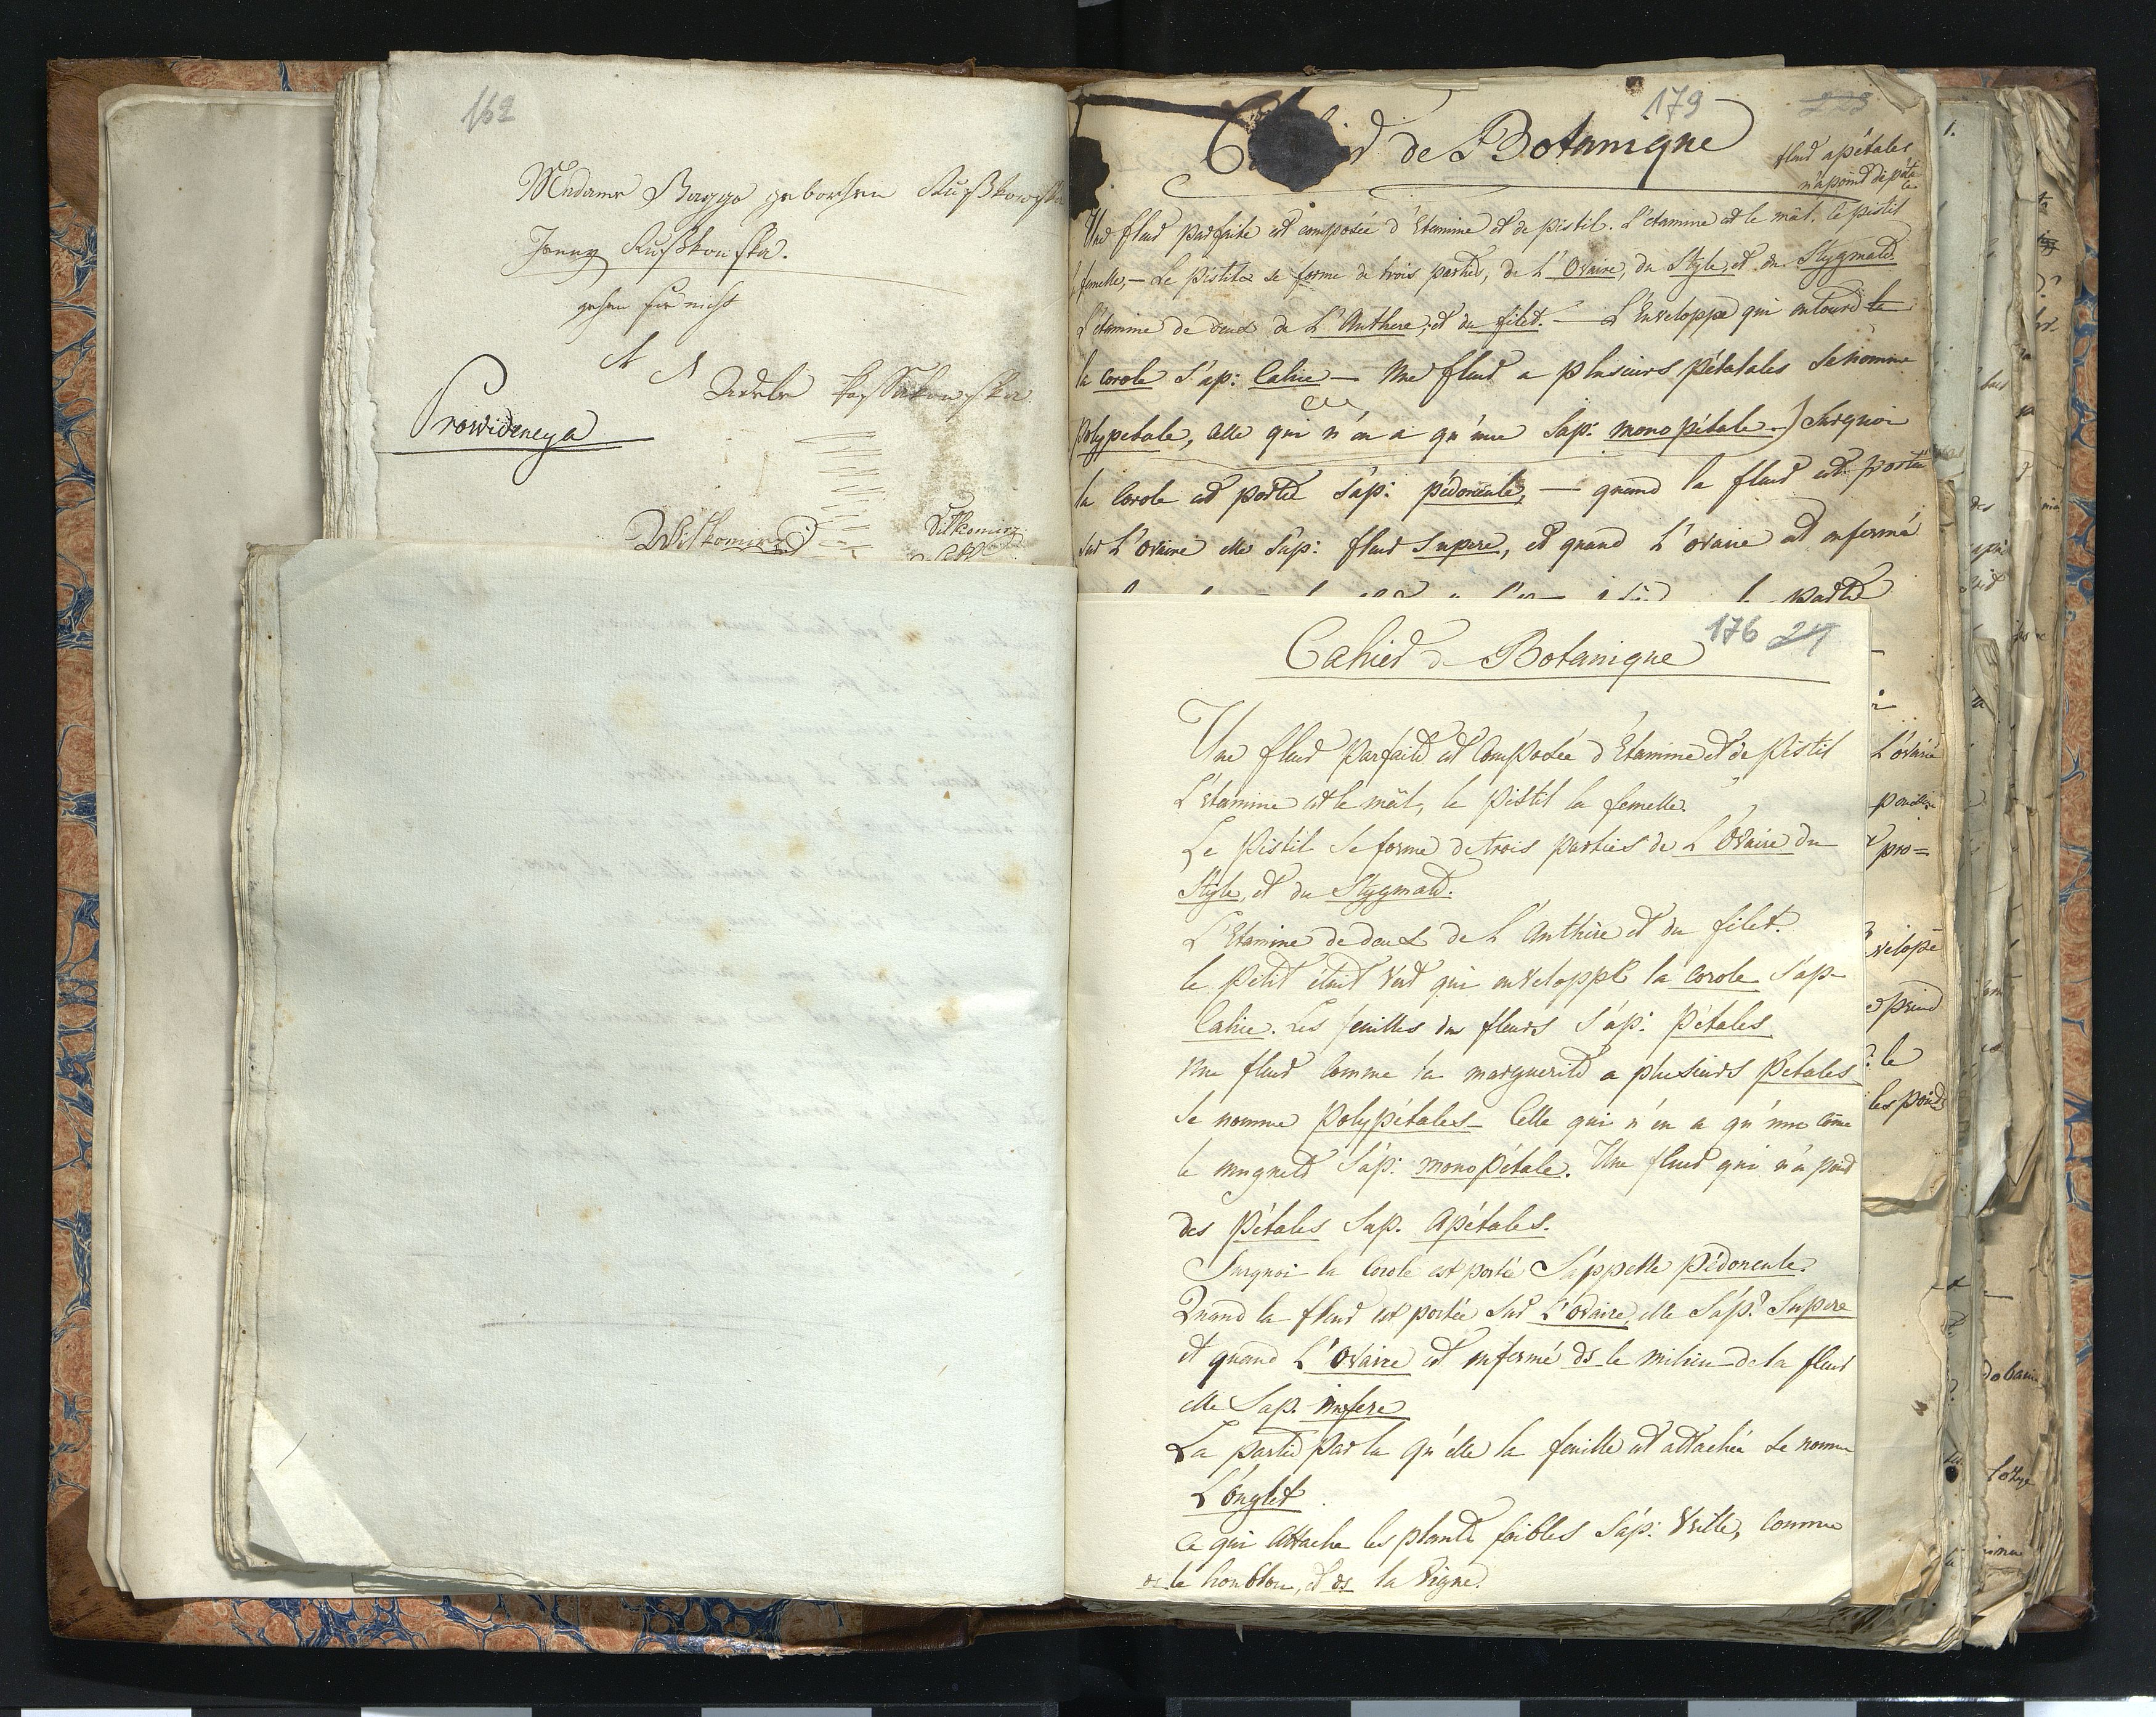 162
Madame Bagge geborhen Rußkowska
Jenny Rußkowska.
gehen sie nicht
Adele Kossakowska
Prowidencya
Wilkomirz
Wilkomirz
179
de Botanique
fleur apétales
n'a point de péta
les
Une fleur parfaite est composée d'Etamine et de pistil. L'étamine est le mâl. le pistil
femelle, — Le Pistile se forme de trois parties, de L'Ovaire, du Style, et du Stygmate
L'étamine de deux de L'Anthere, et du filet. — L'Enveloppe qui entoure le
la corole s'ap: Calice — Une fleur a plusieurs pétatales se nomme
polypetale, celle qui n'en a qu'une s'ap: monopétale. Surquoi
la Corole est portée s'ap: pédoncule, — quand la fleur est portée
sur L'ovaire elle s'ap: fleur supere, et quand L'ovaire est enfermé
partie
176 24
Cahier de Botanique
Une fleur parfaite est Composée d'Etamine et de pistil
L'étamine est le mâl, le pistil la femelle.
Le Pistil se forme de trois parties de L'Ovaire du
Style, et du Stygmate.
L'Etamine de deux de L'Anthère et du filet.
le petit étuit vert qui enveloppe la corole s'ap-
Calice. Les feuilles des fleurs s'ap: Pétales
Une fleur Comme la marguerite a plusieurs Petales
se nomme polypétales - Celle qui n'en a qu'une côme
le muguet s'ap: monopétale. Une fleur qui n'a point
des pétales s'ap. Apétales.
Surquoi la Corole est portée s'appelle pédoncule.
Quand la fleur est portée sur L'ovaire, elle s'ap: Supere
et quand L'ovaire est enfermé ds le milieu de la fleur
elle s'ap. infere
La partie par la qu'elle la feuille est attachée se nomme
L'onglet
Ce qui Attache les plantes foibles s'ap: Vrille, Comme
ds le houblon, et ds la Vigne.
L'ovaire
pro=
velope
prend
le
les poi